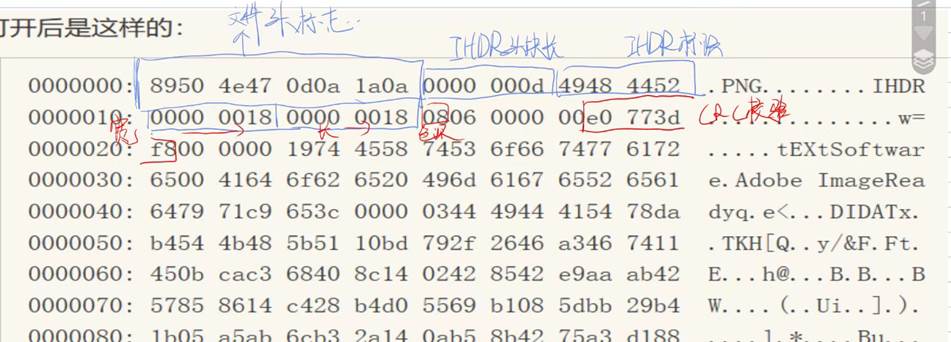 打开后是这样的：
文件头标志
IHDR头块长 IHDR标识
0000000: 8950 4e47 0d0a 1a0a 0000 000d 4948 4452 .PNG........IHDR
0000010: 0000 0018 0000 0018 0806 0000 00e0 773d ..............w=
宽 长 CRC校验
0000020: f800 0000 1974 4558 7453 6f66 7477 6172 .....tEXtSoftwar
0000030: 6500 4164 6f62 6520 496d 6167 6552 6561 e.Adobe ImageRea
0000040: 6479 71c9 653c 0000 0344 4944 4154 78da dyq.e<...DIDATx.
0000050: b454 4b48 5b51 10bd 792f 2646 a346 7411 .TKH[Q..y/&F.Ft.
0000060: 450b cac3 6840 8c14 0242 8542 e9aa ab42 E...h@...B.B...B
0000070: 5785 8614 c428 b4d0 5569 b108 5dbb 29b4 W....(..Ui..].).
0000080: 1b05 a5ab 6cb3 2a14 0ab5 8b42 75a3 d188 ....l.*....Bu...
1